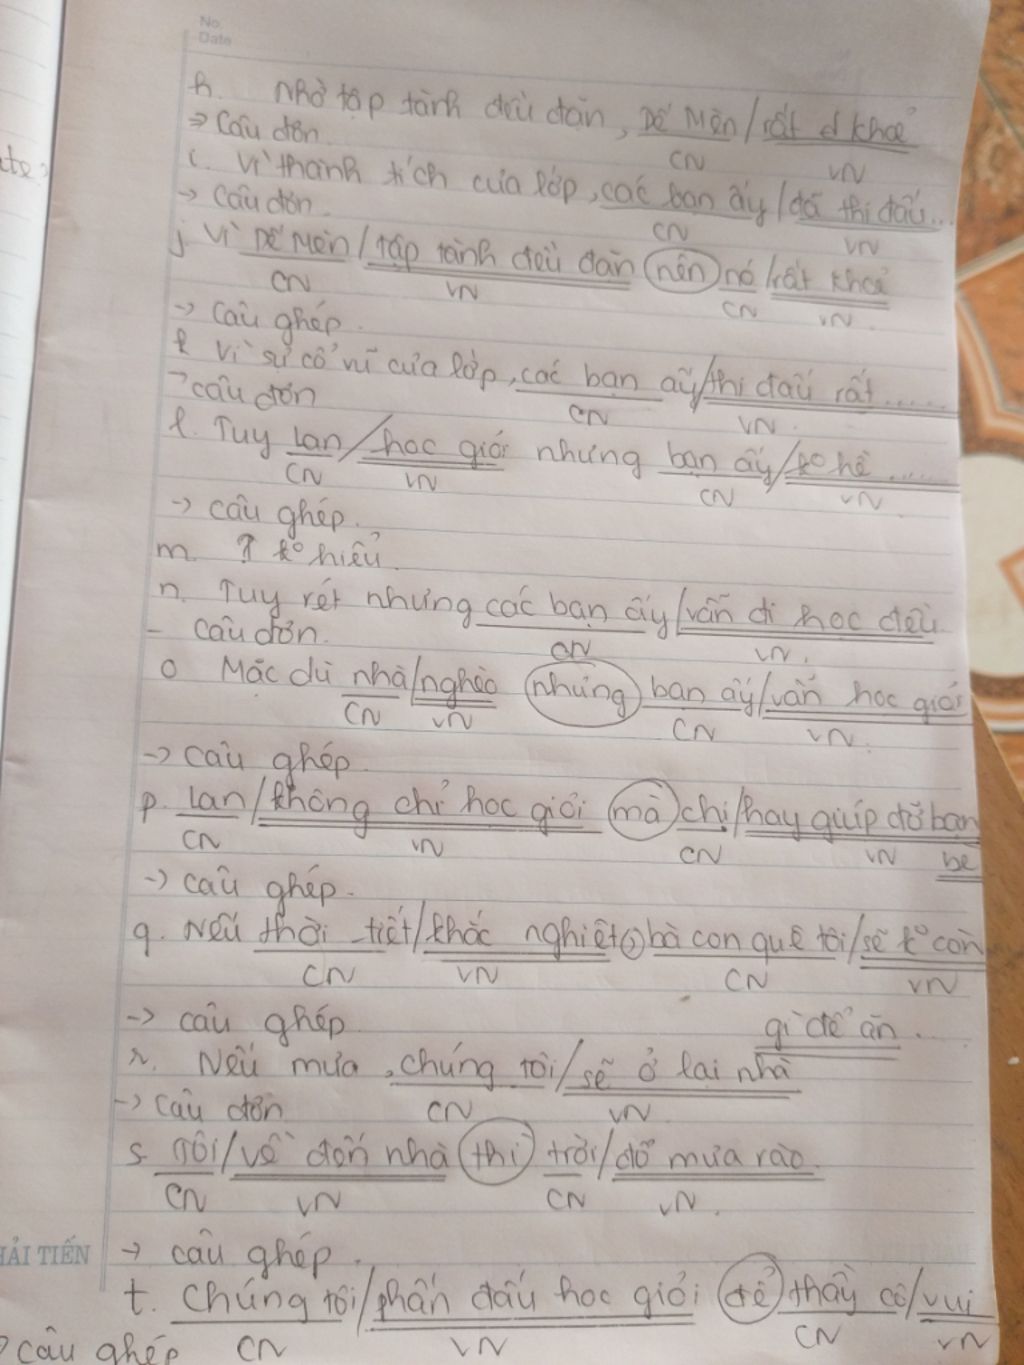 No.
Date
h. Nhờ tập tành đều đặn, Dế Mèn/rất khoẻ
CN VN
→ Câu đơn.
i. Vì thành tích của lớp, các bạn ấy/đã thi đấu...
CN VN
→ Câu đơn.
j Vì Dế Mèn/tập tành đều đặn nên nó/rất khoẻ
CN VN CN VN.
→ Câu ghép.
k Vì sự cổ vũ của lớp, các bạn ấy/thi đấu rất......
→ câu đơn CN VN.
l. Tuy Lan/học giỏi nhưng bạn ấy/ko hề......
CN VN CN VN.
→ câu ghép.
m. ? ko hiểu.
n. Tuy rét nhưng các bạn ấy/vẫn đi học đều.
- câu đơn. CN VN.
o Mặc dù nhà/nghèo nhưng bạn ấy/vẫn học giỏi
CN VN CN VN.
→ câu ghép.
p. Lan/không chỉ học giỏi mà chị/hay giúp đỡ bạn
CN VN CN VN bè
→ câu ghép.
q. Nếu thời tiết/khắc nghiệt, bà con quê tôi/sẽ ko còn
CN VN CN VN
→ câu ghép gì để ăn...
r. Nếu mưa, chúng tôi/sẽ ở lại nhà
→ câu đơn CN VN
s. Tôi/về đến nhà thì trời/đổ mưa rào.
CN VN CN VN.
HẢI TIẾN
→ câu ghép.
t. Chúng tôi/phấn đấu học giỏi để thầy cô/vui
câu ghép CN VN CN VN